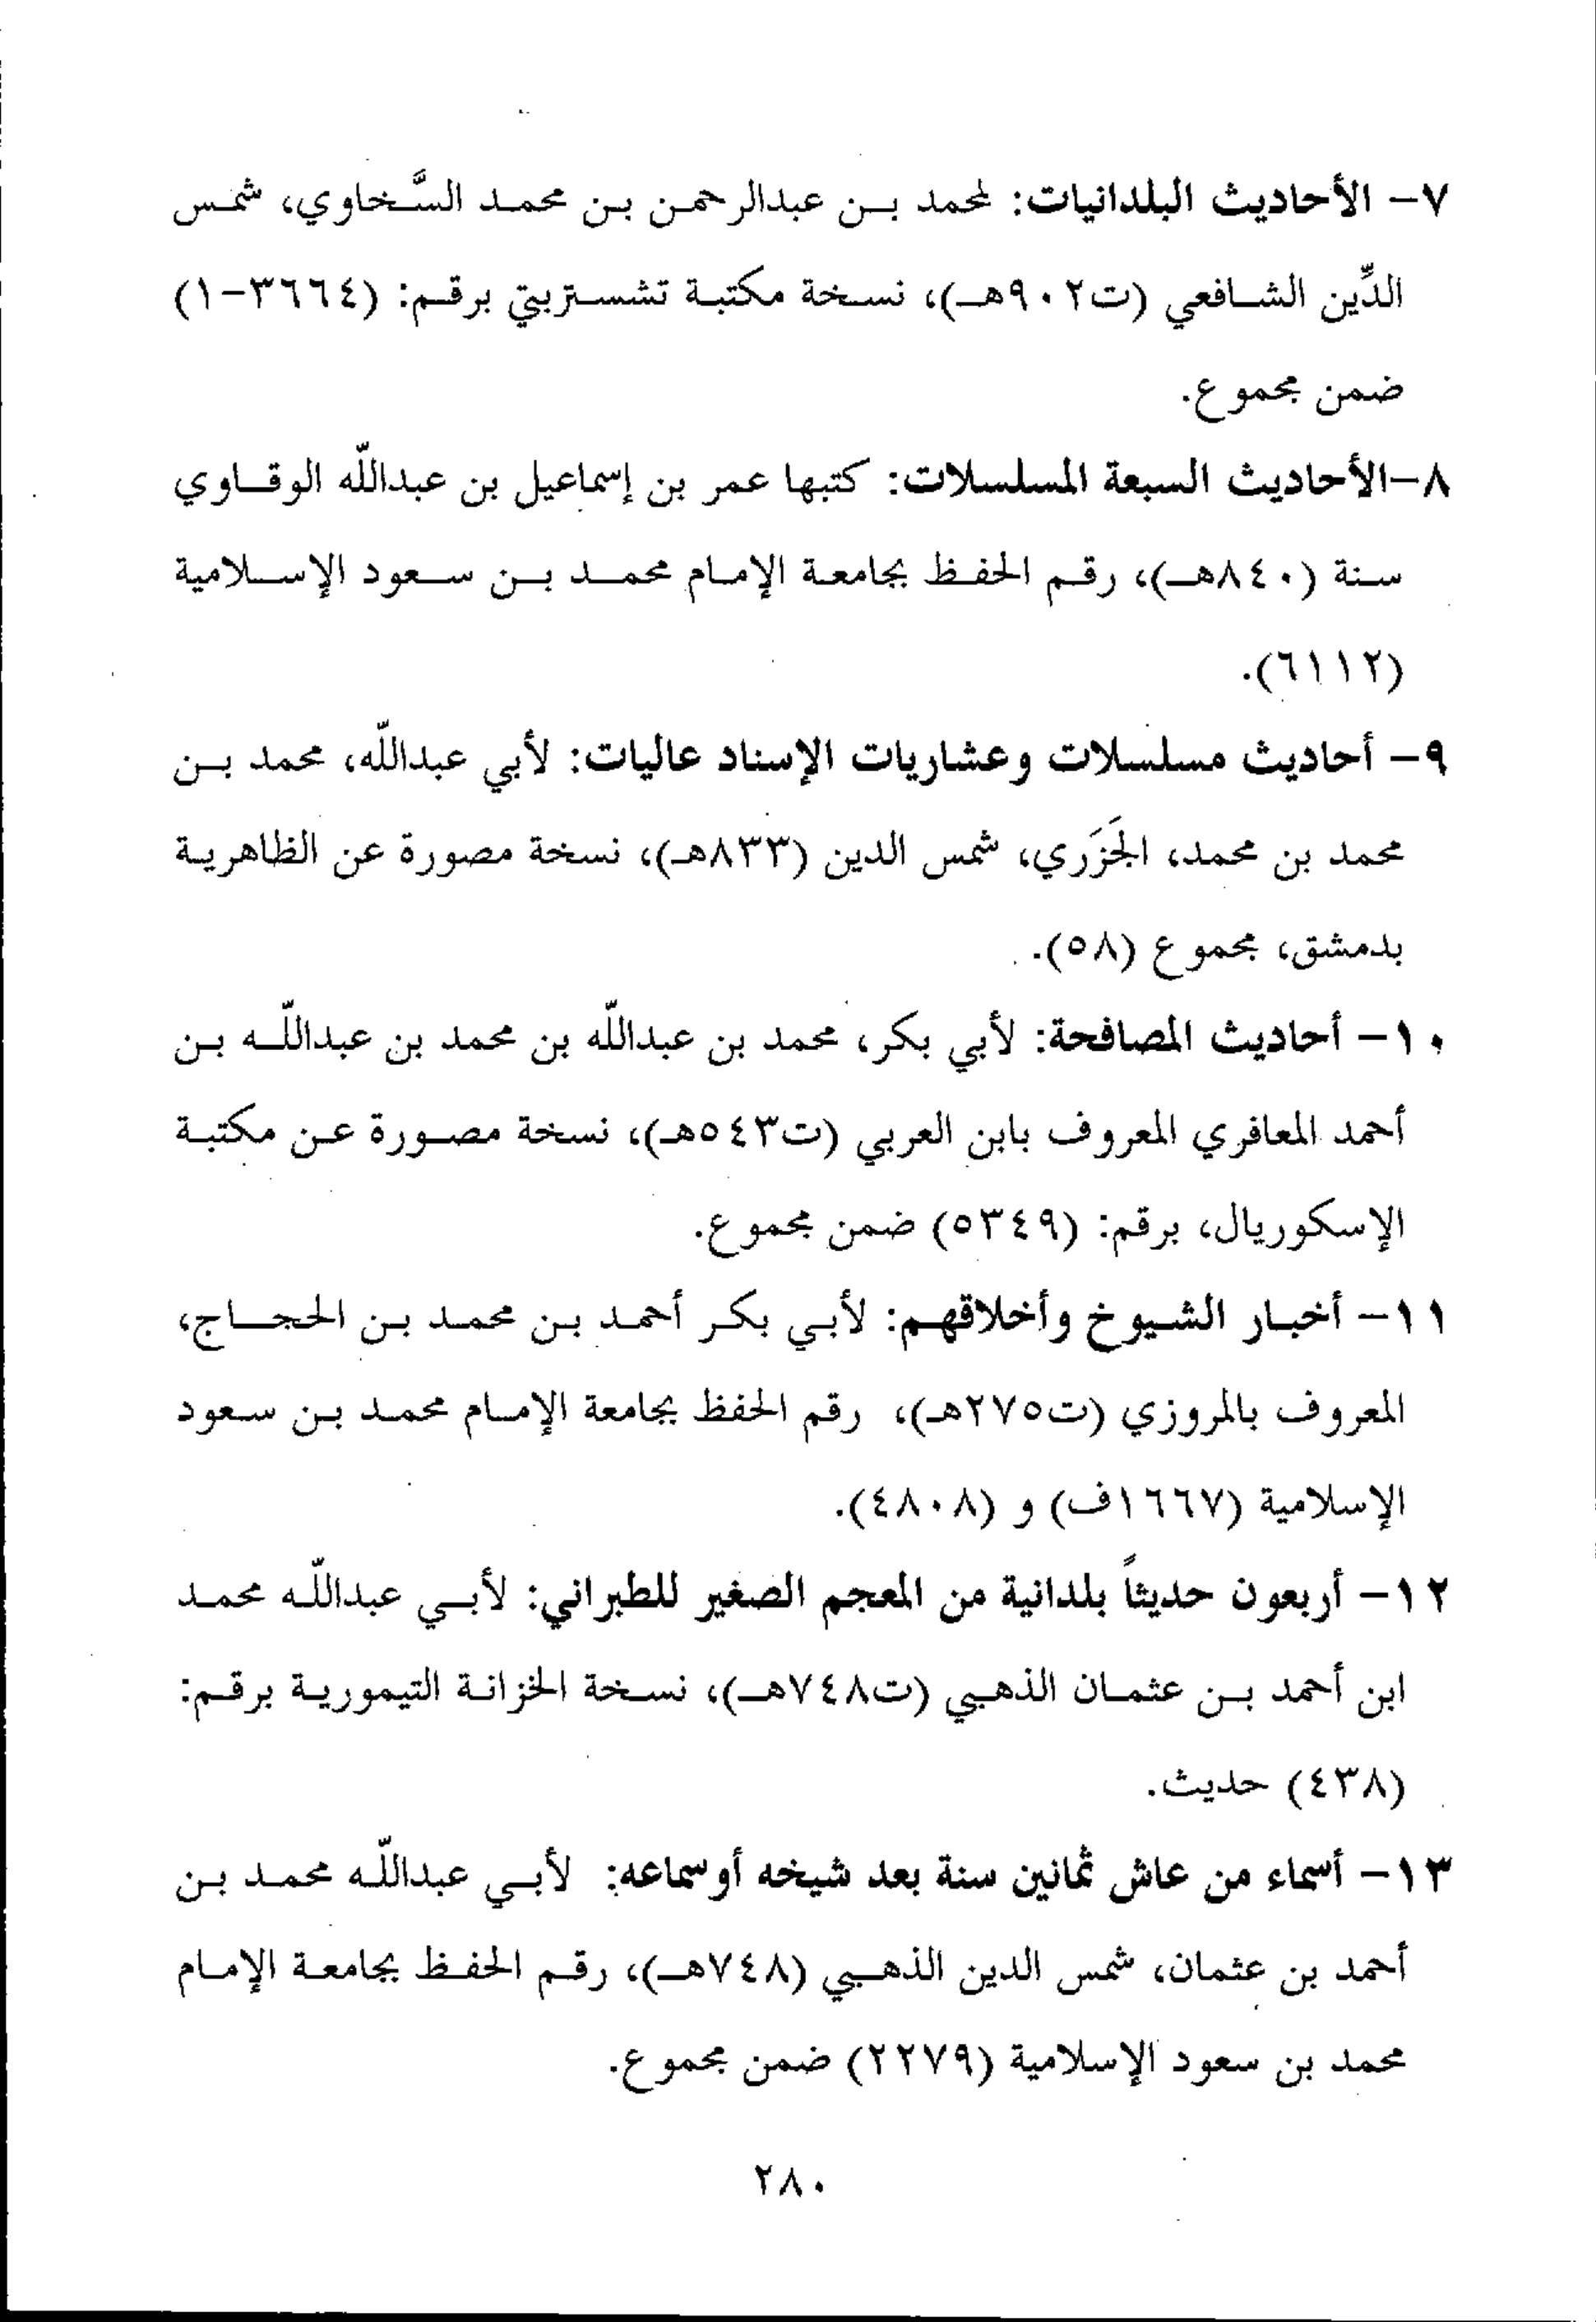 ٧- الأحاديث البلدانيات: لمحمد بن عبدالرحمن بن محمد السَّخاوي، شمس
الدِّين الشافعي (ت٩٠٢هـ)، نسخة مكتبة تشستربتي برقم: (٣٦٦٤-١)
ضمن مجموع.
٨-الأحاديث السبعة المسلسلات: كتبها عمر بن إسماعيل بن عبداللّه الوقاوي
سنة (٨٤٠هـ)، رقم الحفظ بجامعة الإمام محمد بن سعود الإسلامية
(٦١١٢).
٩- أحاديث مسلسلات وعشاريات الإسناد عاليات: لأبي عبداللّه، محمد بن
محمد بن محمد، الجَزَري، شمس الدين (٨٣٣هـ)، نسخة مصورة عن الظاهرية
بدمشق، مجموع (٥٨).
١٠- أحاديث المصافحة: لأبي بكر، محمد بن عبداللّه بن محمد بن عبداللّه بن
أحمد المعافري المعروف بابن العربي (ت٥٤٣هـ)، نسخة مصورة عن مكتبة
الإسكوريال، برقم: (٥٣٤٩) ضمن مجموع.
١١- أخبار الشيوخ وأخلاقهم: لأبي بكر أحمد بن محمد بن الحجاج،
المعروف بالمروزي (ت٢٧٥هـ)، رقم الحفظ بجامعة الإمام محمد بن سعود
الإسلامية (١٦٦٧ف) و (٤٨٠٨).
١٢- أربعون حديثاً بلدانية من المعجم الصغير للطبراني: لأبي عبداللّه محمد
ابن أحمد بن عثمان الذهبي (ت٧٤٨هـ)، نسخة الخزانة التيمورية برقم:
(٤٣٨) حديث.
١٣- أسماء من عاش ثمانين سنة بعد شيخه أوسماعه: لأبي عبداللّه محمد بن
أحمد بن عثمان، شمس الدين الذهبي (٧٤٨هـ)، رقم الحفظ بجامعة الإمام
محمد بن سعود الإسلامية (٢٢٧٩) ضمن مجموع.
٢٨٠